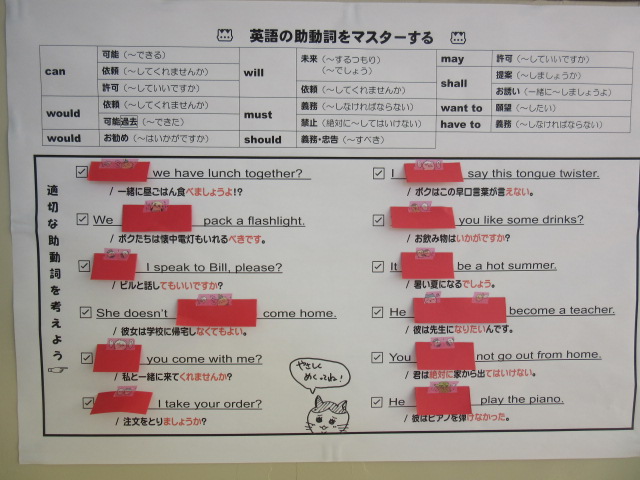 英語の助動詞をマスターする
can
可能（〜できる）
依頼（〜してくれませんか）
許可（〜していいですか）
would
依頼（〜してくれませんか）
可能過去（〜できた）
would
お勧め（〜はいかがですか）
will
未来（〜するつもり）
（〜でしょう）
依頼（〜してくれませんか）
must
義務（〜しなければならない）
禁止（絶対に〜してはいけない）
should
義務・忠告（〜すべき）
may
許可（〜していいですか）
shall
提案（〜しましょうか）
お誘い（一緒に〜しましょうよ）
want to
願望（〜したい）
have to
義務（〜しなければならない）
適切な助動詞を考えよう
we have lunch together?
/ 一緒に昼ごはん食べましょうよ!?
We pack a flashlight.
/ ボクたちは懐中電灯もいれるべきです。
I speak to Bill, please?
/ ビルと話してもいいですか?
She doesn't come home.
/ 彼女は学校に帰宅しなくてもよい。
you come with me?
/ 私と一緒に来てくれませんか?
I take your order?
/ 注文をとりましょうか?
I say this tongue twister.
/ ボクはこの早口言葉が言えない。
you like some drinks?
/ お飲み物はいかがですか?
It be a hot summer.
/ 暑い夏になるでしょう。
He become a teacher.
/ 彼は先生になりたいんです。
You not go out from home.
/ 君は絶対に家から出てはいけない。
He play the piano.
/ 彼はピアノを弾けなかった。
やさしく
めくってね!